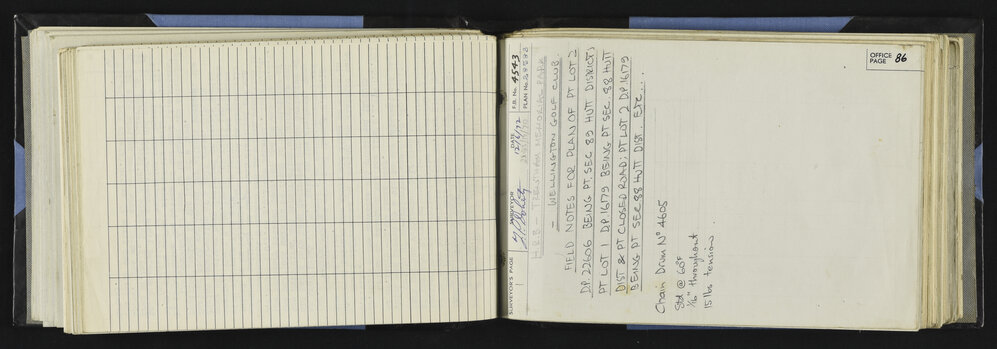 OFFICE PAGE 86
SURVEYOR'S PAGE 1
SURVEYOR
DATE 12/6/72
F.B. No. 4543
PLAN No.
TRENTHAM MEMORIAL PARK
- WELLINGTON GOLF CLUB.
FIELD NOTES FOR PLAN OF PT LOT 2
D.P. 22606 BEING PT. SEC 89 HUTT DISTRICT;
PT LOT 1 D.P. 16179 BEING PT SEC. 88 HUTT
DIST & PT CLOSED ROAD; PT LOT 2 D.P. 16179
BEING PT SEC 88 HUTT DIST. ETC...
Chain Drum Nº 4605
Std @ 60°F
1/16" throughout
15 lbs tension.